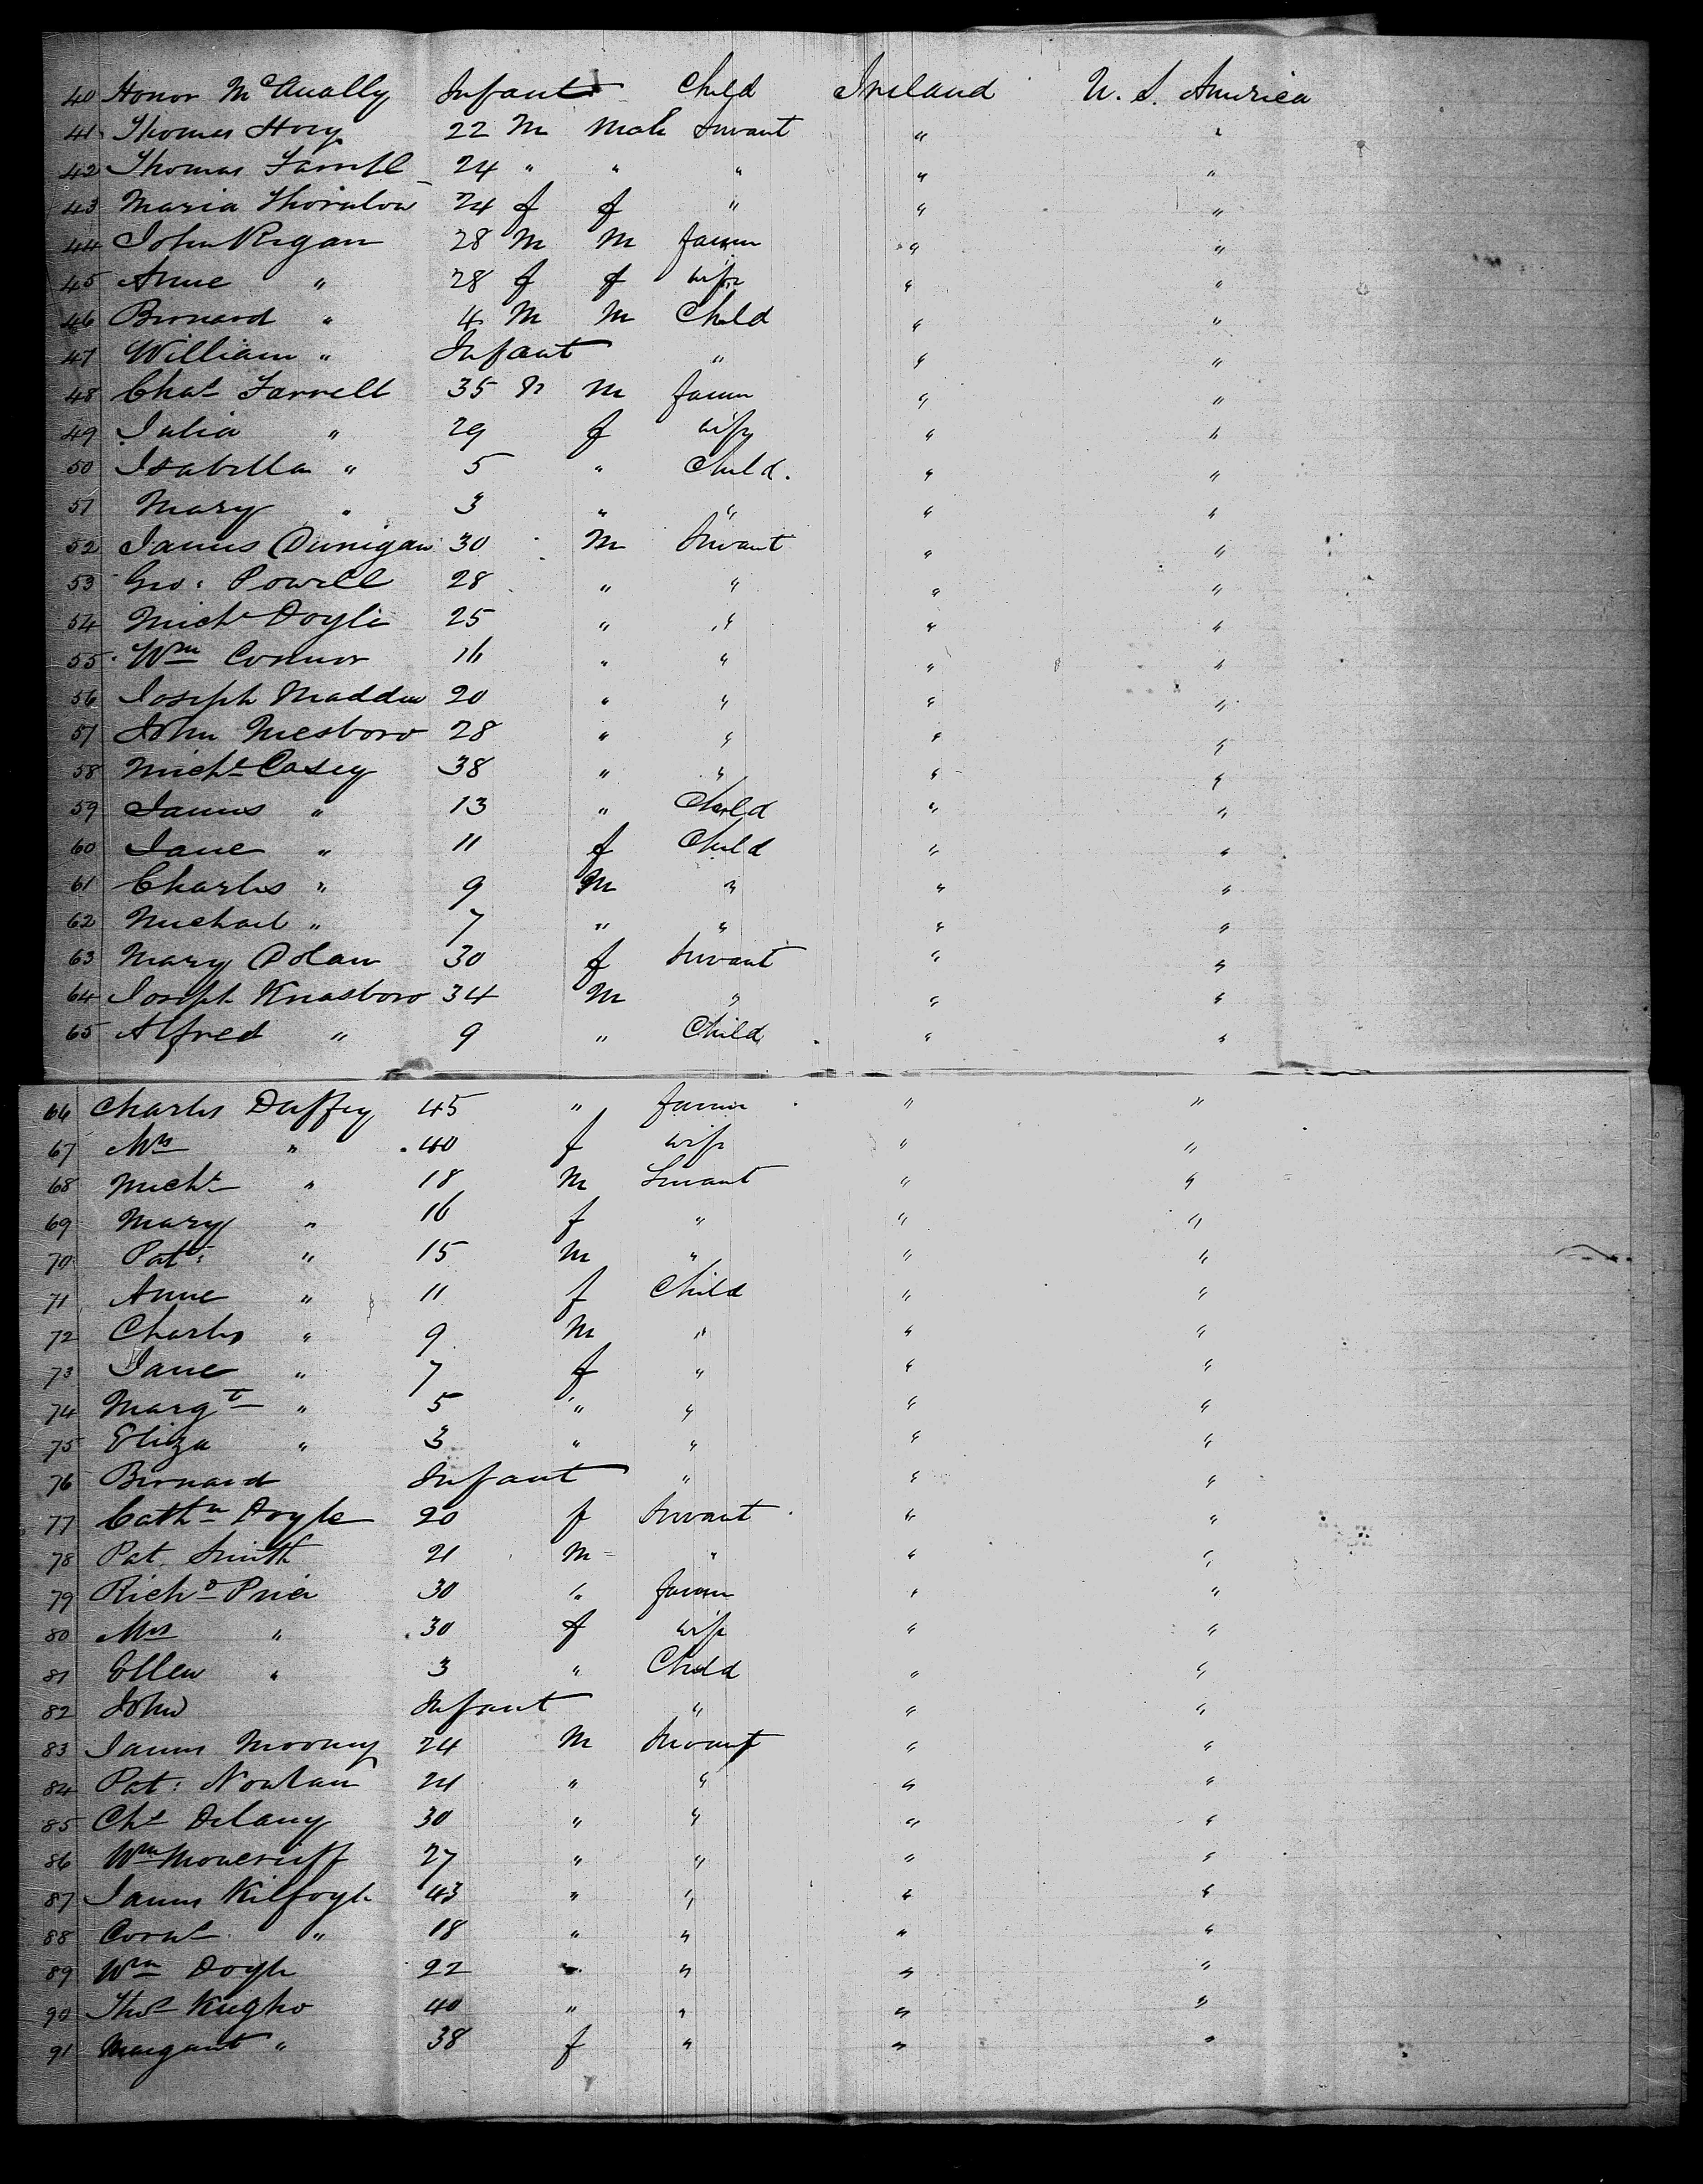 40 Honor McAnally Infant Child Ireland U. S. America
41 Thomas Hoey 22 M Male Servant " "
42 Thomas Farrell 24 " " " " "
43 Maria 24 f f " " "
44 John Regan 28 M M farmer " "
45 Anne " 28 f f wife " "
46 Bernard " 4 M M Child " "
47 William " Infant " " "
48 Chas Farrell 35 M farmer " "
49 Julia " 29 f wife " "
50 Isabella " 5 " Child. " "
51 Mary " 3 " " " "
52 James Dunigan 30 M Servant " "
53 Geo: Powell 28 " " " "
54 Michl Doyle 25 " " " "
55 Wm Connor 16 " " " "
56 Joseph Madden 20 " " " "
57 John 28 " " " "
58 Michl Casey 38 " " " "
59 James " 13 " Child " "
60 Jane " 11 f Child " "
61 Charles " 9 M " " "
62 Michael " 7 " " " "
63 Mary Dolan 30 f Servant " "
64 Joseph Knasboro 34 M " " "
65 Alfred " 9 " Child " "
66 Charles Duffey 45 " farmer " "
67 Mrs " 40 f wife " "
68 Michl " 18 M Servant " "
69 Mary " 16 f " " "
70 Pat: " 15 M " " "
71 Anne " 11 f Child " "
72 Charles " 9 M " " "
73 Jane " 7 f " " "
74 Margt " 5 " " " "
75 Eliza " 3 " " " "
76 Bernard Infant " " "
77 Cathn Doyle 20 f Servant " "
78 Pat. Smith 21 M " " "
79 Richd Price 30 " farmer " "
80 Mrs " 30 f wife " "
81 Ellen " 3 " Child " "
82 John Infant " " "
83 James Mooney 24 M Servant " "
84 Pat: Nowlan 21 " " " "
85 Chs Delany 30 " " " "
86 Wm Moncrieff 27 " " " "
87 James Kilfoyle 43 " " " "
88 Corns " 18 " " " "
89 Wm Doyle 22 " " " "
90 Thos Keogho 40 " " " "
91 Margaret " 38 f " " "